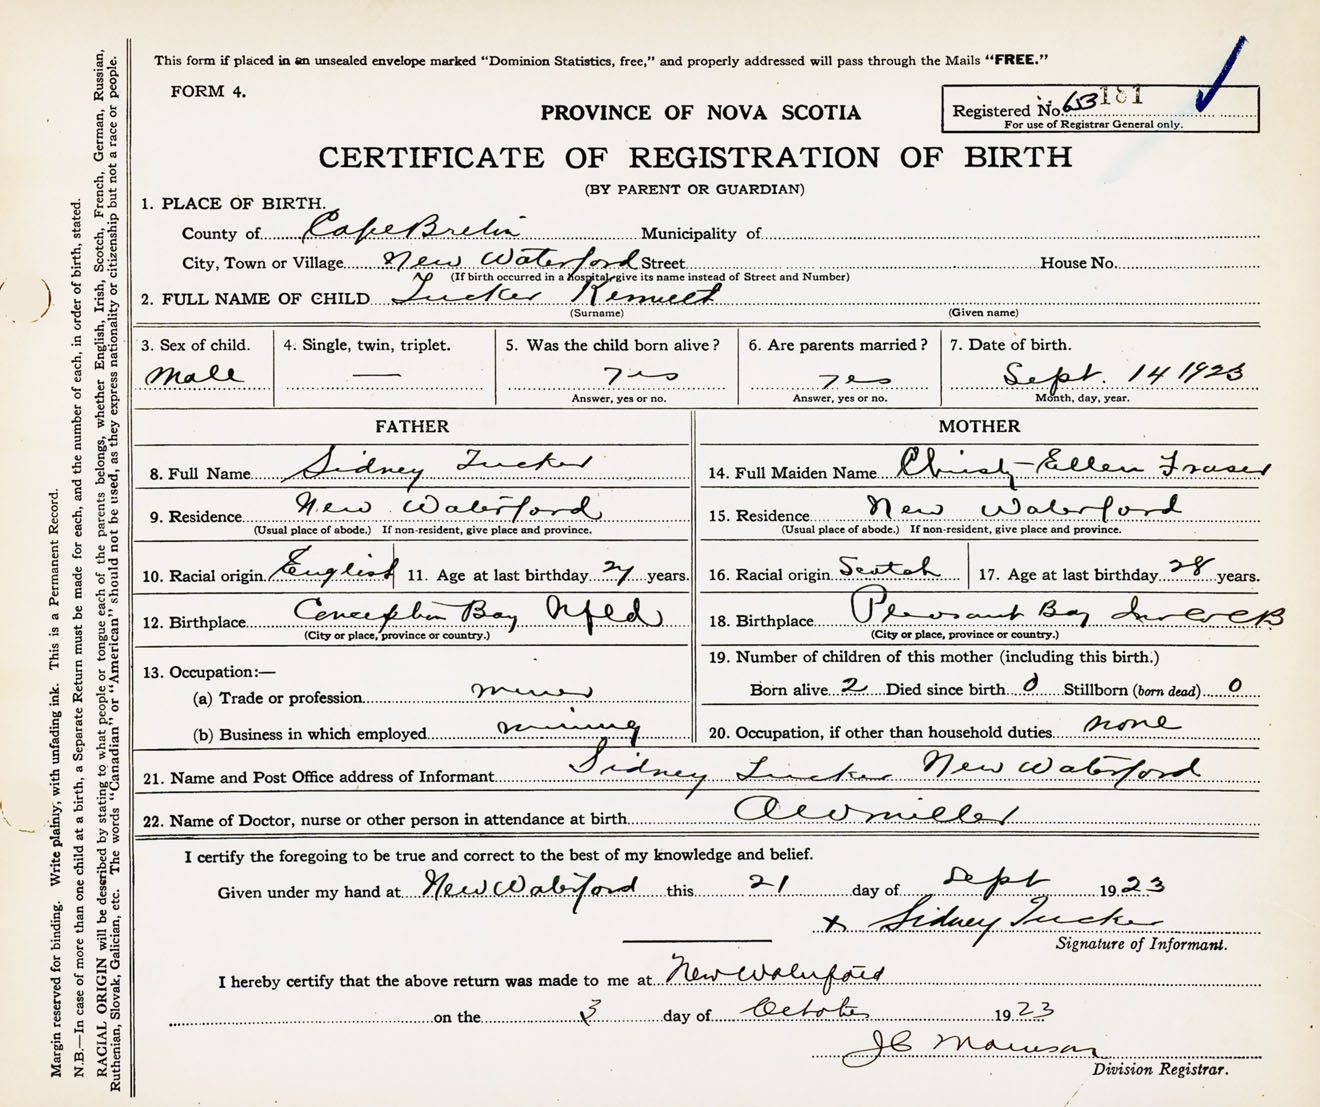 This form if placed in an unsealed envelope marked “Dominion Statistics, free,” and properly addressed will pass through the Mails “FREE.”
FORM 4.
PROVINCE OF NOVA SCOTIA
Registered No. 653 181
For use of Registrar General only.
CERTIFICATE OF REGISTRATION OF BIRTH
(BY PARENT OR GUARDIAN)
1. PLACE OF BIRTH.
County of Cape Breton Municipality of
City, Town or Village New Waterford Street House No.
(If birth occurred in a Hospital, give its name instead of Street and Number)
2. FULL NAME OF CHILD Tucker
(Surname) (Given name)
3. Sex of child. 4. Single, twin, triplet. 5. Was the child born alive? 6. Are parents married? 7. Date of birth.
Male — yes yes Sept. 14 1923
Answer, yes or no. Answer, yes or no. Month, day, year.
FATHER MOTHER
8. Full Name Sidney Tucker 14. Full Maiden Name Christy-Ellen Fraser
9. Residence New Waterford 15. Residence New Waterford
(Usual place of abode.) If non-resident, give place and province. (Usual place of abode.) If non-resident, give place and province.
10. Racial origin English 11. Age at last birthday 27 years. 16. Racial origin Scotch 17. Age at last birthday 28 years.
12. Birthplace Conception Bay Nfld 18. Birthplace Pleasant Bay
(City or place, province or country.) (City or place, province or country.)
13. Occupation:—
(a) Trade or profession miner
(b) Business in which employed mining
19. Number of children of this mother (including this birth.)
Born alive 2 Died since birth 0 Stillborn (born dead) 0
20. Occupation, if other than household duties none
21. Name and Post Office address of Informant Sidney Tucker New Waterford
22. Name of Doctor, nurse or other person in attendance at birth A W Miller
I certify the foregoing to be true and correct to the best of my knowledge and belief.
Given under my hand at New Waterford this 21 day of Sept 1923
x Sidney Tucker
Signature of Informant.
I hereby certify that the above return was made to me at New Waterford
on the 3 day of October 1923
J C Morrison
Division Registrar.
Margin reserved for binding. Write plainly, with unfading ink. This is a Permanent Record.
N.B.—In case of more than one child at a birth, a Separate Return must be made for each, and the number of each, in order of birth, stated.
RACIAL ORIGIN will be described by stating to what people or tongue each of the parents belongs, whether English, Irish, Scotch, French, German, Russian,
Ruthenian, Slovak, Galician, etc. The words “Canadian” or “American” should not be used, as they express nationality or citizenship but not a race or people.